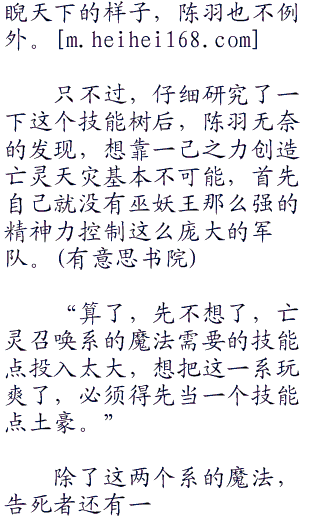 睨天下的样子，陈羽也不例
外。[m.heihei168.com]
只不过，仔细研究了一
下这个技能树后，陈羽无奈
的发现，想靠一己之力创造
亡灵天灾基本不可能，首先
自己就没有巫妖王那么强的
精神力控制这么庞大的军
队。(有意思书院)
“算了，先不想了，亡
灵召唤系的魔法需要的技能
点投入太大，想把这一系玩
爽了，必须得先当一个技能
点土豪。”
除了这两个系的魔法，
告死者还有一